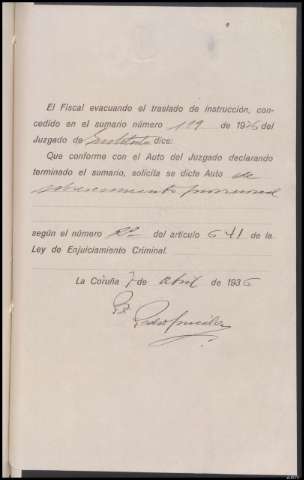 El Fiscal evacuando el traslado de instrucción, con-
cedido en el sumario número 199 de 1936 del
Juzgado de Instituto dice:
Que conforme con el Auto del Juzgado declarando
terminado el sumario, solicita se dicte Auto de
sobreseimiento provisional
según el número 2º del artículo 641 de la
Ley de Enjuiciamiento Criminal.
La Coruña 7 de abril de 1936